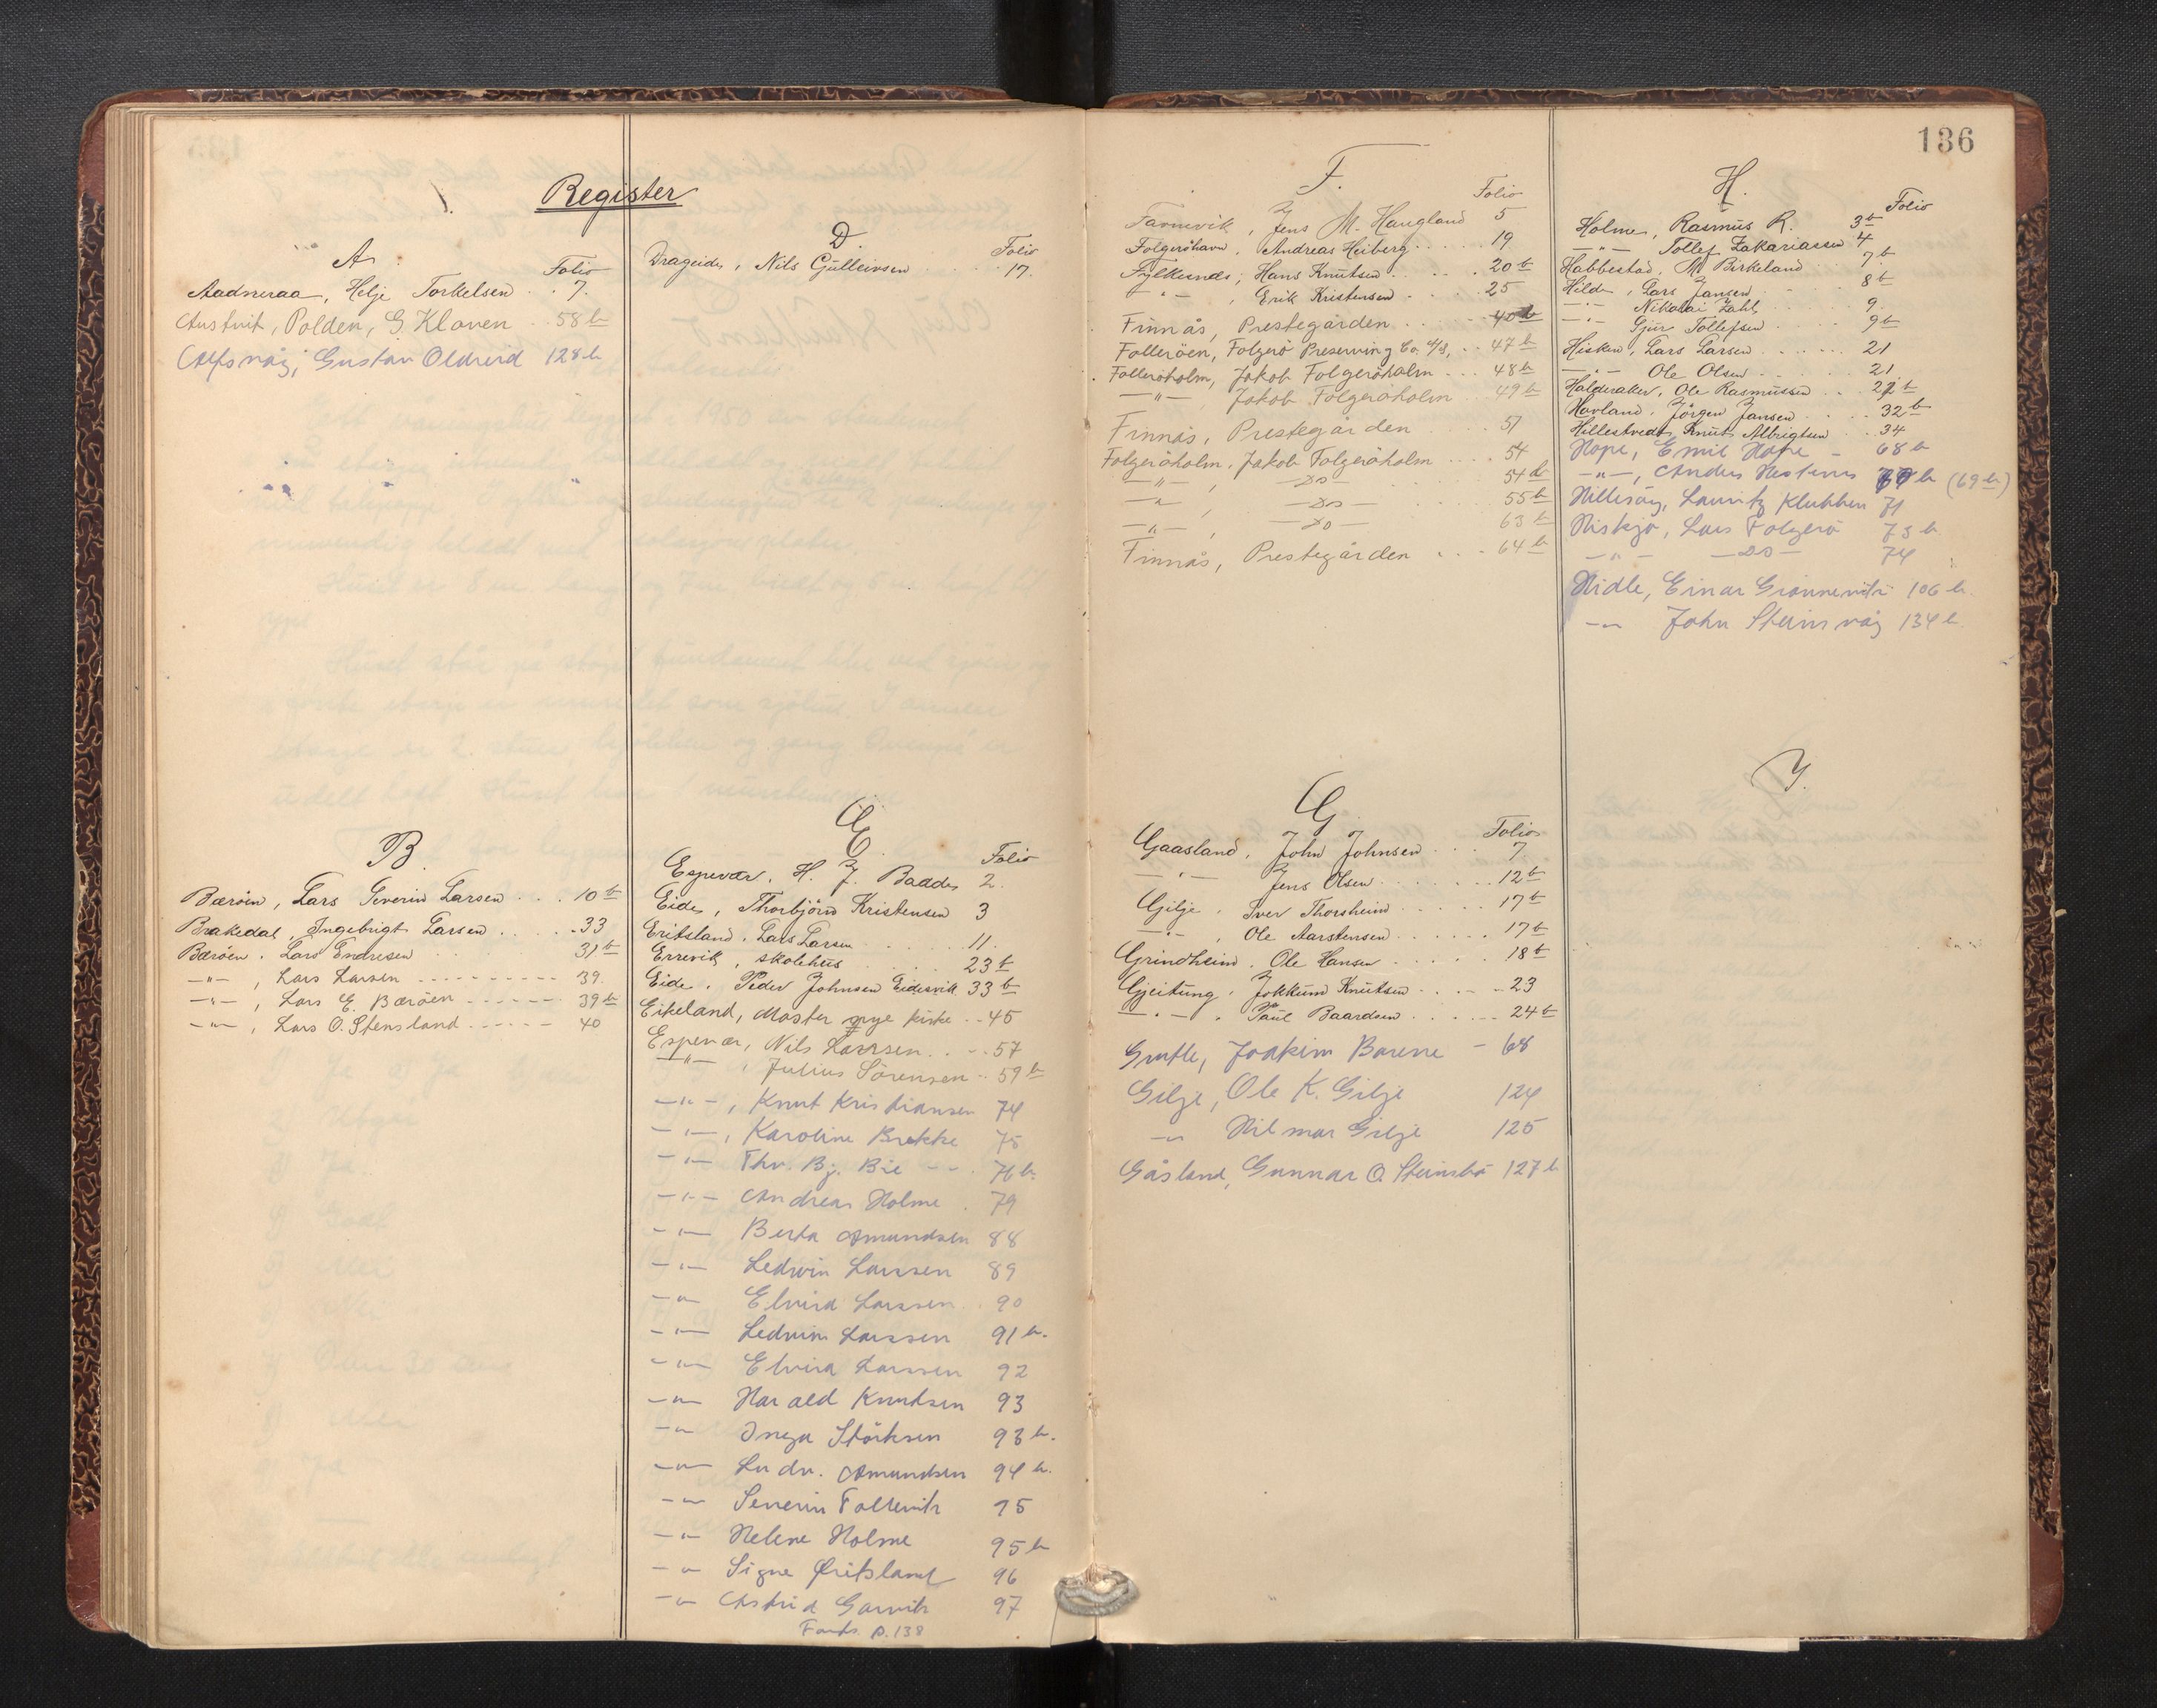 Register
A.
Folio
Aadneraa, Helje Torkelsen . . 7.
Austvik, Polden, G. Kloven . . 58 b
Alfsvåg, Gustav Oldreid 128 b
B.
Bærøen, Lars Severin Larsen . . . 10 b
Brakedal, Ingebrigt Larsen . . . . 33
Bærøen. Lars Endresen 31 b
— " — , Lars Larsen - - - - - - - - - 39.
— " — , Lars E. Bærøen - - - - - - 39 b
— " — , Lars O. Stensland - - - - - 40
D.
Folio
Drageide, Nils Gulleivsen . . . . 17.
E.
Folio
Espevær, H. J. Baade 2.
Eide, Thorbjörn Kristensen 3
Eritsland, Lars Larsen . . . . . 11.
Errevik, skolehus . . . . 23 b
Eide, Peder Johnsen Eidesvik 33 b
Eikeland, Moster nye kirke . . 45
Espevær, Nils Larsen . . . . 57
— " — , Julius Sörensen . . 59 b
— " — , Knut Kristiansen 74
— " — , Karoline Brekke 75
— " — Thv. Bj. Bie - - . 76 b.
— " — Andreas Holme . 79
— " — Berta Amundsen 88
— " — Ledvin Larssen 89
— " — Elvira Larssen . 90
— " — Ledvin Larssen 91 b.
— " — Elvira Larssen 92
— " — Harald Knutsen 93
— " — Inga Störksen 93 b.
— " — Ludv. Amundsen 94 b.
— " — Severin Tollevik 95
— " — Helene Holme 95 b
— " — Signe Øritsland 96
— " — Astrid Garvik 97
Forts. p. 138
136
F.
Folio
Farnevik, Jens M. Haugland 5
Folgeröhavn, Andreas Heiberg . . . . . 19
Fylkesnes, Hans Knutsen . . . . . 20 b
— " — , Erik Kristensen . . . . 25
Finnås, Prestegården . . . . . 40 b
Folleröen, Folgerö Preserving Co. A/S, . . 47 b
Folleröholm, Jakob Folgeröholm . . . 48 b
— " — Jakob Folgeröholm 49 b
Finnås, Prestegården . . . . 51
Folgeröholm, Jakob Folgeröholm . . . . 54
— " — , — Do — 54 b
— " — , — Do — 55 b
— " — , — Do — 63 b
Finnås, Prestegården . . . 64 b
G.
Folio
Gaasland, John Johnsen . . . 7
— " — Jens Olsen . . . . . . . 12 b
Gilje, Iver Thorsheim . . . . . 17 b
— " — , Ole Aarstensen . . . . . . 17 b
Grindheim, Ole Hansen . . . . . 18 b
Gjeitung, Jokkum Knutsen . . . . . 23
— " — , Paul Baardsen . . . . . . 24 b
Grutle, Joakim Barene - 68
Gilje, Ole K. Gilje 124
— " Hilmar Gilje 125
Gåsland, Gunnar O. Steinsbö 127 b
H.
Folio
Holme, Rasmus R. 3 b
— " — Tollef Zakariassen 4
Habbestad, M Birkeland . . 7 b
Hilde, Lars Jansen . . . . . 8 b
— " — Nikolai Zahl . . . . 9.
— " — Gjur Tollefsen . . . . 9 b
Hisken, Lars Larsen . . . . . . 21
— " — Ole Olsen . . . . . 21.
Halderaker, Ole Rasmussen . . . 22 b
Havland, Jörgen Jansen . . . . 32 b
Hillestveit, Knut Albrigtsen . . . 34
Hope, Emil Hope - 68 b
— " — , Anders Nesteves 69 b (69 b)
Hillesvåg, Lauritz Klubben 71
Hiskjo, Lars Folgerö 73 b
— " — — Do — 74
Hidle, Einar Grønnevik 106 b.
— " John Steinsvåg 134 b.
I.